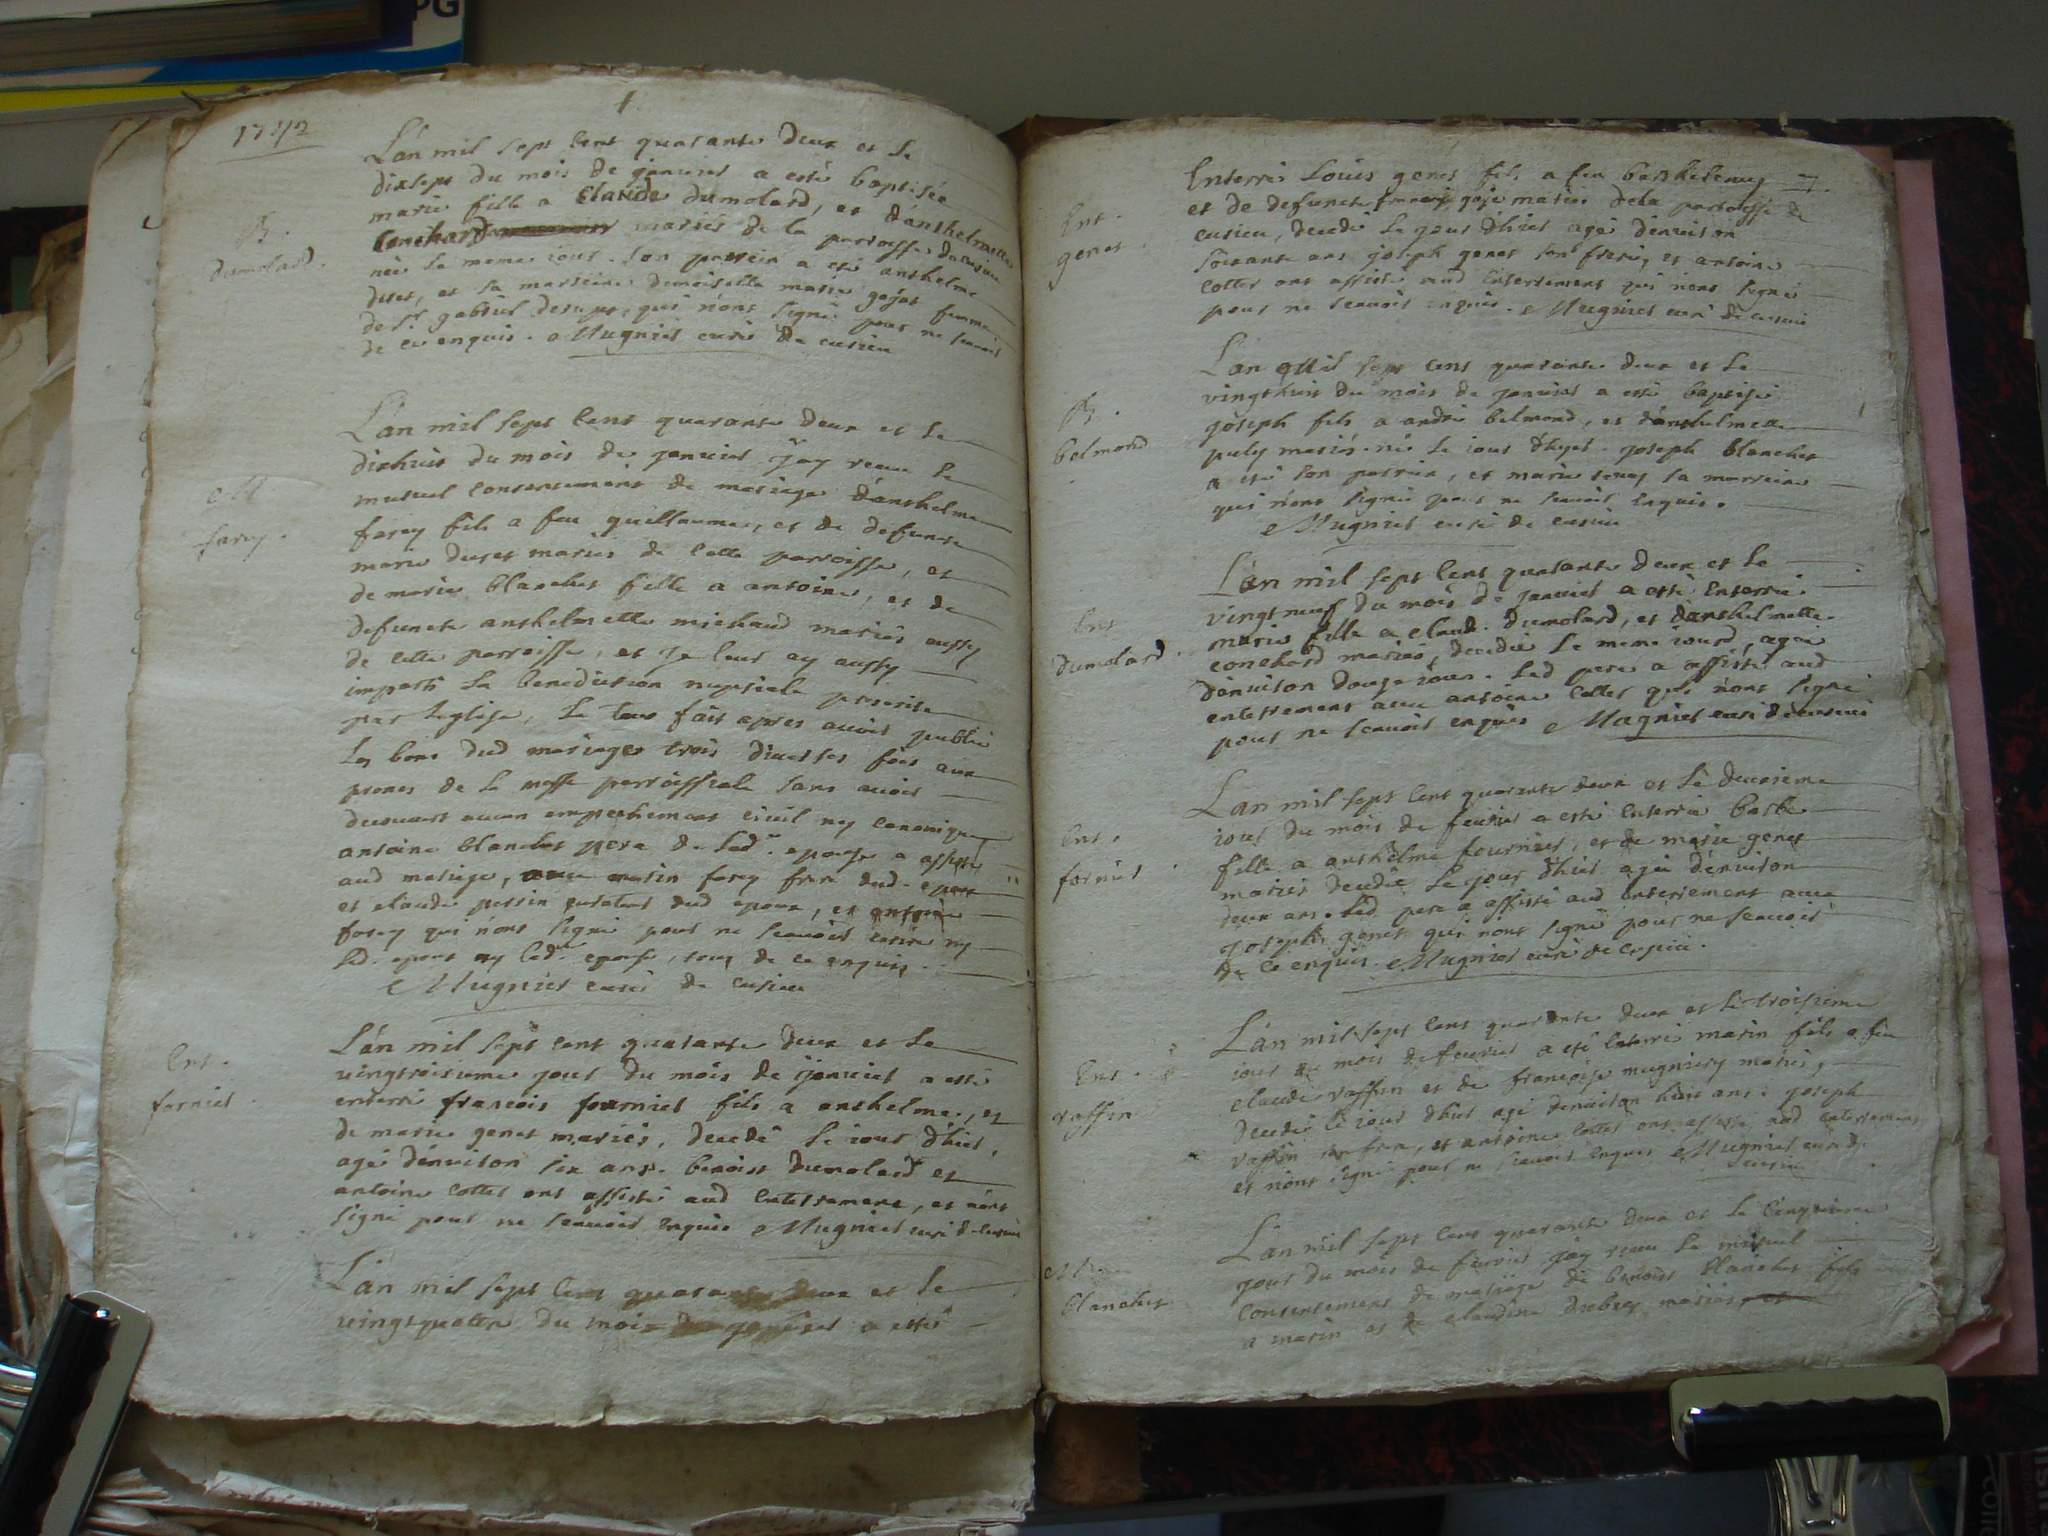 1742
L'an mil sept cent quarante deux et le
dixsept du mois de janvier a esté baptisée
marie fille a Claude dumolard, et d'anthelmette
Conchard mariés de la parroisse de cusieu
née le meme iour. Son parrein a été anthelme
et sa marreine demoiselle marie gojat femme
de Sr. gabriel qui n'ont signé pour ne scavoir
de ce enquis. Mugnier curé de cusieu
B.
dumolard.
L'an mil sept cent quarante deux et le
dixhuit du mois de janvier j'ay receu le
mutuel consentement de mariage d'anthelme
farey fils a feu guillaume, et de defuncte
marie mariés de cette parroisse, et
de marie blanchet fille a antoine, et de
defuncte anthelmette michaud mariés aussy
de cette parroisse, et je leur ay aussy
imparti la benediction nuptiale prescrite
par leglise, le tout fait apres avoir publié
les bans dud mariage trois diverses fois aux
prones de la messe parroissiale sans avoir
decouvert aucun empechement civil ny canonique
antoine blanchet pere de lad. epouse a assisté
aud mariage, marin farey frere dud. epoux
et claude perrin curateur dud epoux, et antoine
farey qui n'ont signé pour ne scavoir ecrire ny
led. epoux ny lad. epouse, tous de ce enquis.
Mugnier curé de cusieu
M.
farey.
L'an mil sept cent quarante deux et le
vingtroisieme jour du mois de janvier a esté
enterré francois fornier fils a anthelme, et
de marie genet mariés, decedé le iour d'hier,
agé d'enviton six ans. benoist dumolard et
antoine cottet ont assisté aud enterrement, et n'ont
signé pour ne scavoir enquis Mugnier curé de cusieu
Ent.
fornier.
L'an mil sept cent quarante deux et le
vingtquatre du mois de janvier a esté
Enterré Louis genet fils a feu barthelemy
et de defuncte mariés de la parroisse de
cusieu, decedé le jour d'hier agé d'enviton
soixante ans joseph genet son frere, et antoine
cottet ont assisté aud enterrement qui n'ont signé
pour ne scavoir enquis. Mugnier curé de cusieu
Ent.
genet.
L'an Mil sept cent quarante deux et le
vingthuit du mois de janvier a esté baptisé
joseph fils a andré belmond, et d'anthelmette
mariés. né le iour d'hyer. joseph blanchet
a été son parrein, et marie sa marreine
qui n'ont signé pour ne scavoir enquis.
Mugnier curé de cusieu
B.
belmond
L'an mil sept cent quarante deux et le
vingt neuf du mois de janvier a esté enterrée
marie fille a claude dumolard, et d'anthelmette
conchard mariés, decedée le meme iour, agée
d'enviton douze iours. led pere a assisté aud
enterrement avec antoine cottet qui n'ont signé
pour ne scavoir enquis Mugnier curé de cusieu
Ent
dumolard.
L'an mil sept cent quarante deux et le deuxieme
iour du mois de fevrier a esté enterrée barbe
fille a anthelme fournier, et de marie genet
mariés decedée le jour d'hier agée d'enviton
deux ans. led pere a assisté aud enterrement avec
joseph genet qui n'ont signé pour ne scavoir
de ce enquis. Mugnier curé de cusieu.
Ent.
fornier
L'an mil sept cent quarante deux et le troisieme
iour du mois de fevrier a eté enterré marin fils a feu
claude raffin et de francoise mugniery mariés,
decedé le iour d'hier agé d'enviton huit ans. joseph
raffin frere, et antoine cottet ont assisté aud enterrement
et n'ont signé pour ne scavoir enquis Mugnier curé de
cusieu
Ent.
raffin
L'an mil sept cent quarante deux et le cinquieme
jour du mois de fevrier j'ay receu le mutuel
consentement de mariage de benoist blanchet fils
a marin et de claudine mariés
M.
blanchet